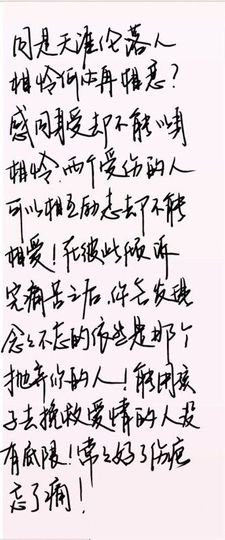 同是天涯伦落人
相怜何必再相恋?
感同身受却不能以身
相怜.两个受伤的人
可以相互励志却不能
相爱!在彼此倾诉
完痛苦之后,你会发现
念念不忘的依然是那个
抛弃你的人!能用孩
子去挽救爱情的人没
有底限!常常好了伤疤
忘了痛!